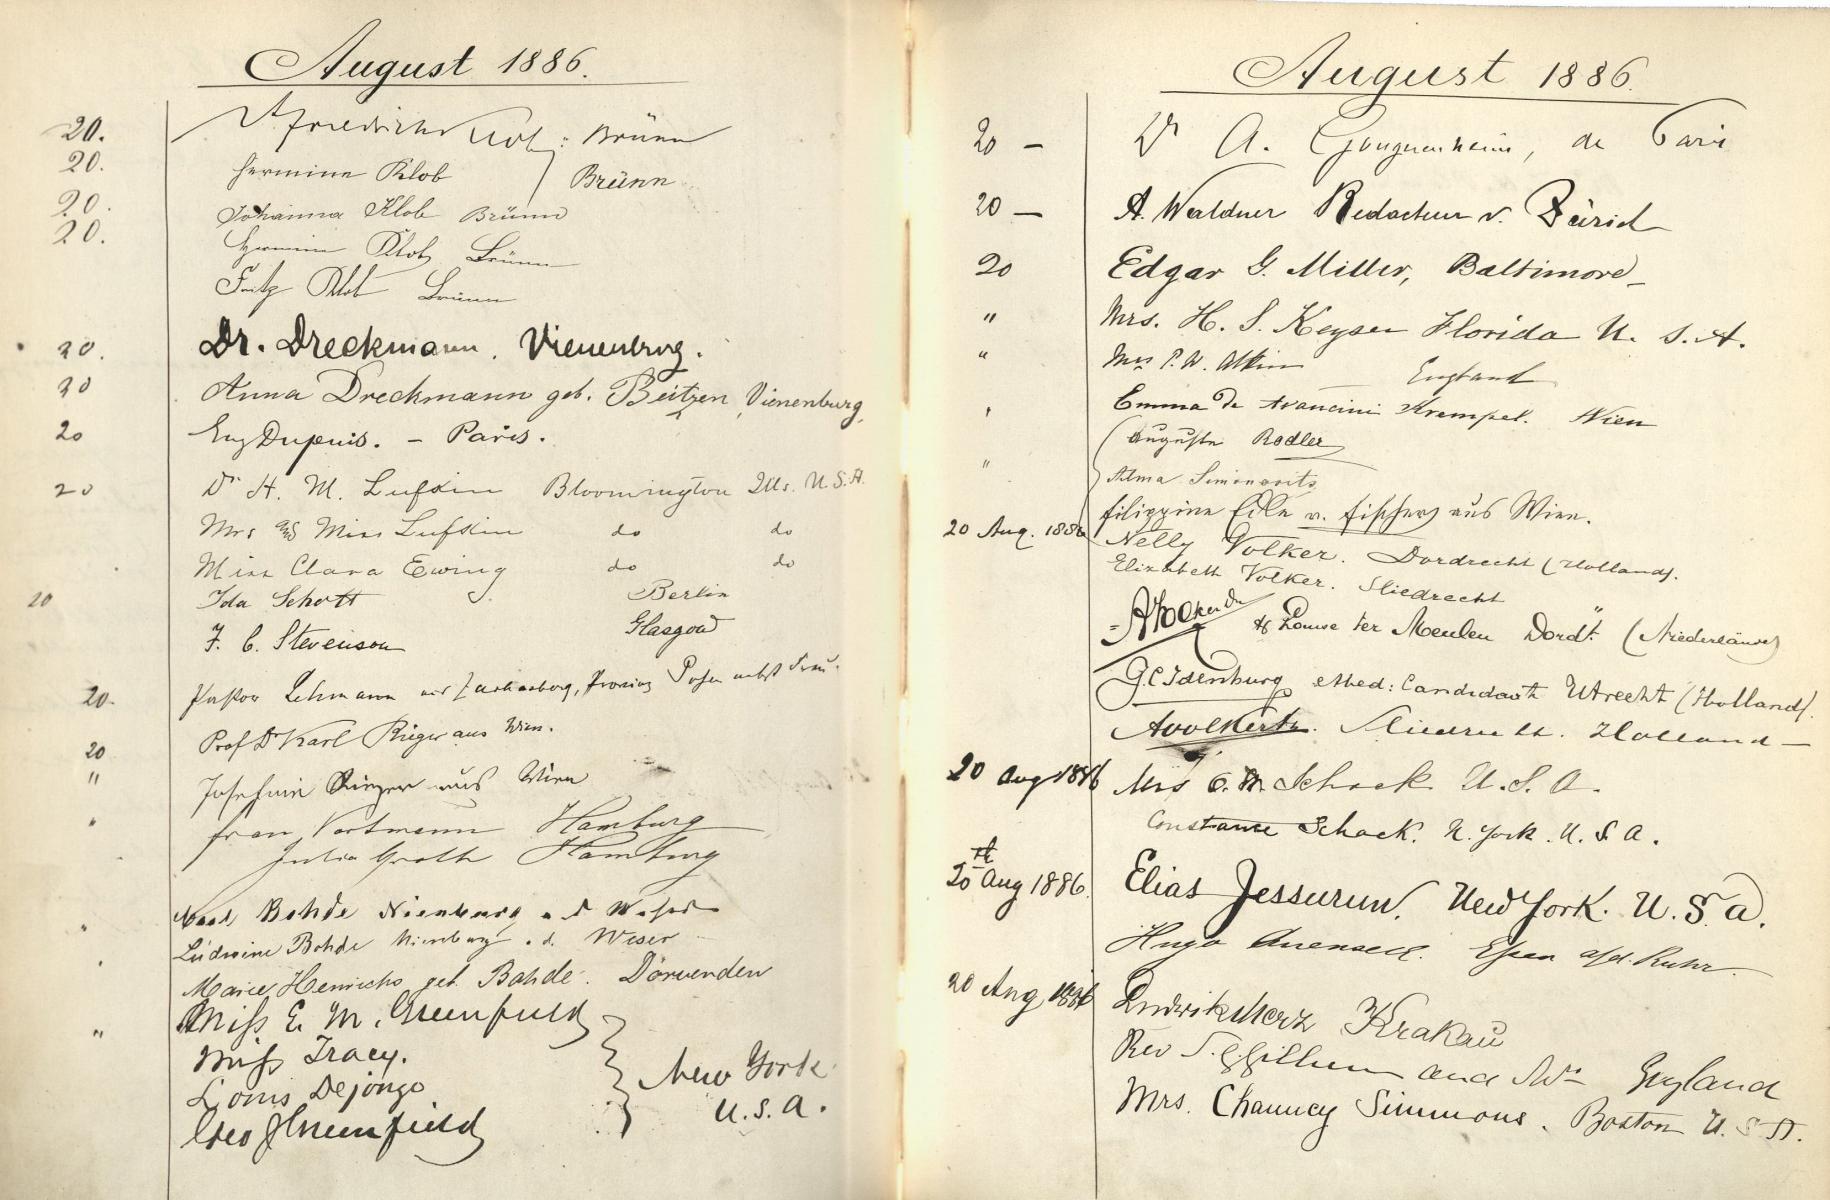 August 1886.
20. Friedrich Klob: Brünn
20. Hermine Klob Brünn
20. Johanna Klob Brünn
20. Hermine Klob Brünn
Fritz Klob Brünn
20. Dr. Dreckmann. Vienenburg.
20 Anna Dreckmann geb. Beitzen, Vienenburg,
20 Eug Dupuis. - Paris.
20 Dr H. M. Lufkin Bloomington Ills. U.S.A.
Mrs and Miss Lufkin do do
Miss Clara Ewing do do
20 Ida Schott Berlin
F. C. Stevenson Glasgow
20. Pastor Lehmann aus Provinz Posen nebst Frau.
20 Prof Dr Karl Rieger aus Wien.
" Josefine Rieger aus Wien
" Frau Hamburg
Julia Groth Hamburg
" Bohde Nienburg a. d. Weser
" Ludwine Bohde Nienburg a. d. Weser
Marie Henrichs geb. Bohde. Dörverden
" Miss E. M. Greenfield
Miss Tracy.
Louis Dejonge
Geo J Greenfield
New York
U.S.A.
August 1886.
20 — Dr A. Gouguenheim, de Paris
20 — A. Waldner Redacteur v. Zürich
20 Edgar G. Miller, Baltimore
" Mrs. H. S. Keyser Florida U. S. A.
" Mrs P. W. England
" Emma de Avancini Krempel. Wien
Auguste Rodler
" Alma Simonovits
Filippine Edle v. Fischer aus Wien.
20 Aug. 1886 Nelly Volker. Dordrecht (Holland).
Elizabeth Volker. Sliedrecht
Louise ter Meulen Dordt. (Niederländ)
G.C. Idenburg Candidaat Utrecht (Holland).
A Volker Sliedrecht. Holland —
20 Aug 1886 Mrs Schack U.S.A.
Constance Schack. N. York. U. S A.
20th Aug 1886. Elias Jessurun. New York. U. S. A.
Hugo Essen a/d. Ruhr.
20 Aug 1886 Ludwik Merz Krakau
Rev and Mrs England
Mrs. Chauncy Simmons. Boston U. S. A.